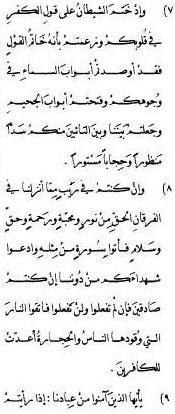 ٧) وإذ ختم الشيطان على قول الكفر
في قلوبكم وزعمتم بأنه خاتم القول
فقد أوصدتم أبواب السماء في
وجوهكم وفتحتم أبواب الجحيم
وجعلتم بيننا وبين التائبين منكم سدا
منظورا وحجابا مستورا.
٨) وإن كنتم في ريب مما أنزلنا في
الفرقان الحق من نور ومحبة ورحمة وحق
وسلام فأتوا بسورة من مثله وادعوا
شهداءكم من دوننا إن كنتم
صادقين فإن لم تفعلوا ولن تفعلوا فاتقوا النار
التي وقودها الناس والحجارة أعدت
للكافرين.
٩) يأيها الذين آمنوا من عبادنا: إذا رأيتم